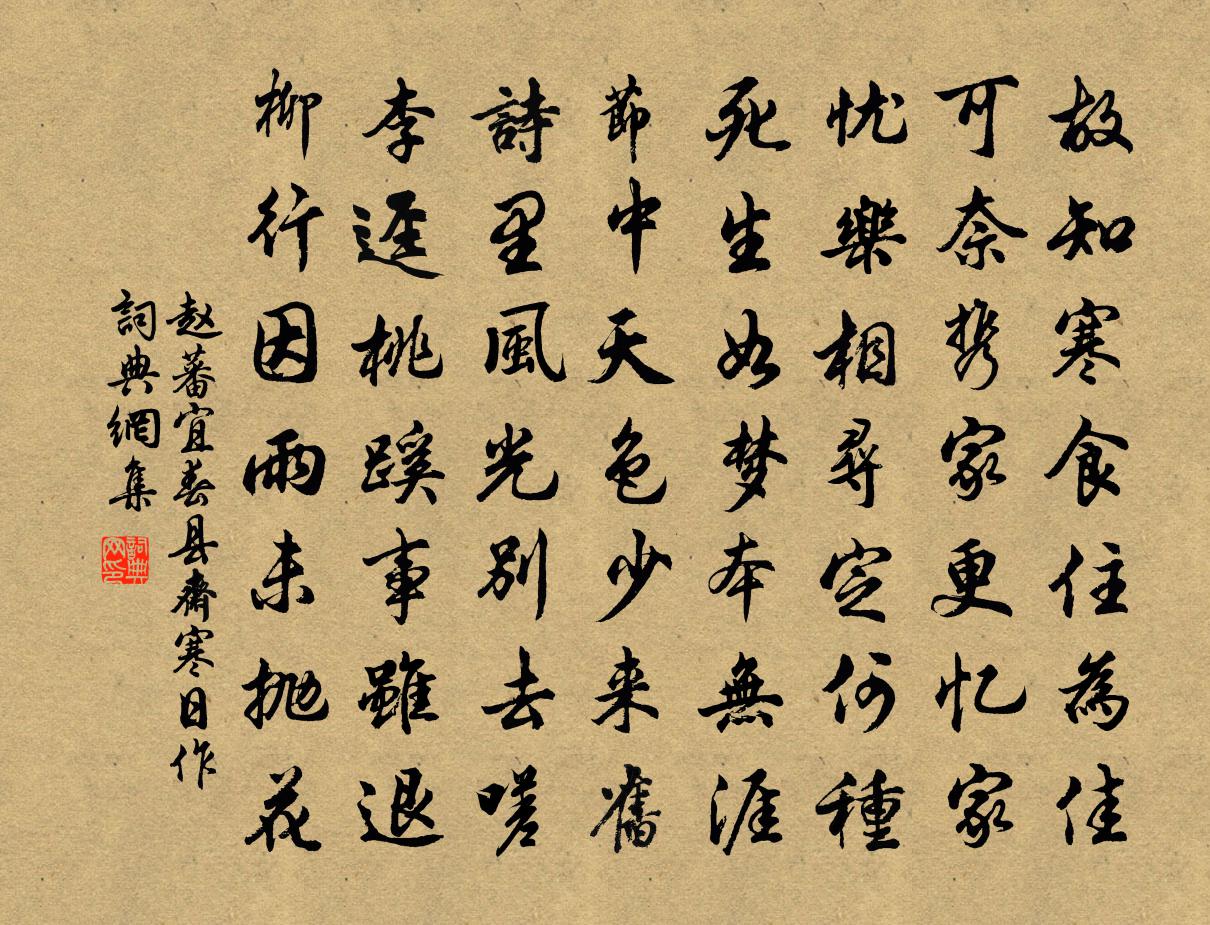 故知寒食住為佳
可奈携家更忆家
忧樂相尋定何種
死生如梦本無涯
節中天色少来舊
詩里風光别去嗟
李逕桃蹊事雖退
柳行因雨未抛花
赵蕃宜春县齋寒日作
詞典網集
詞典網印